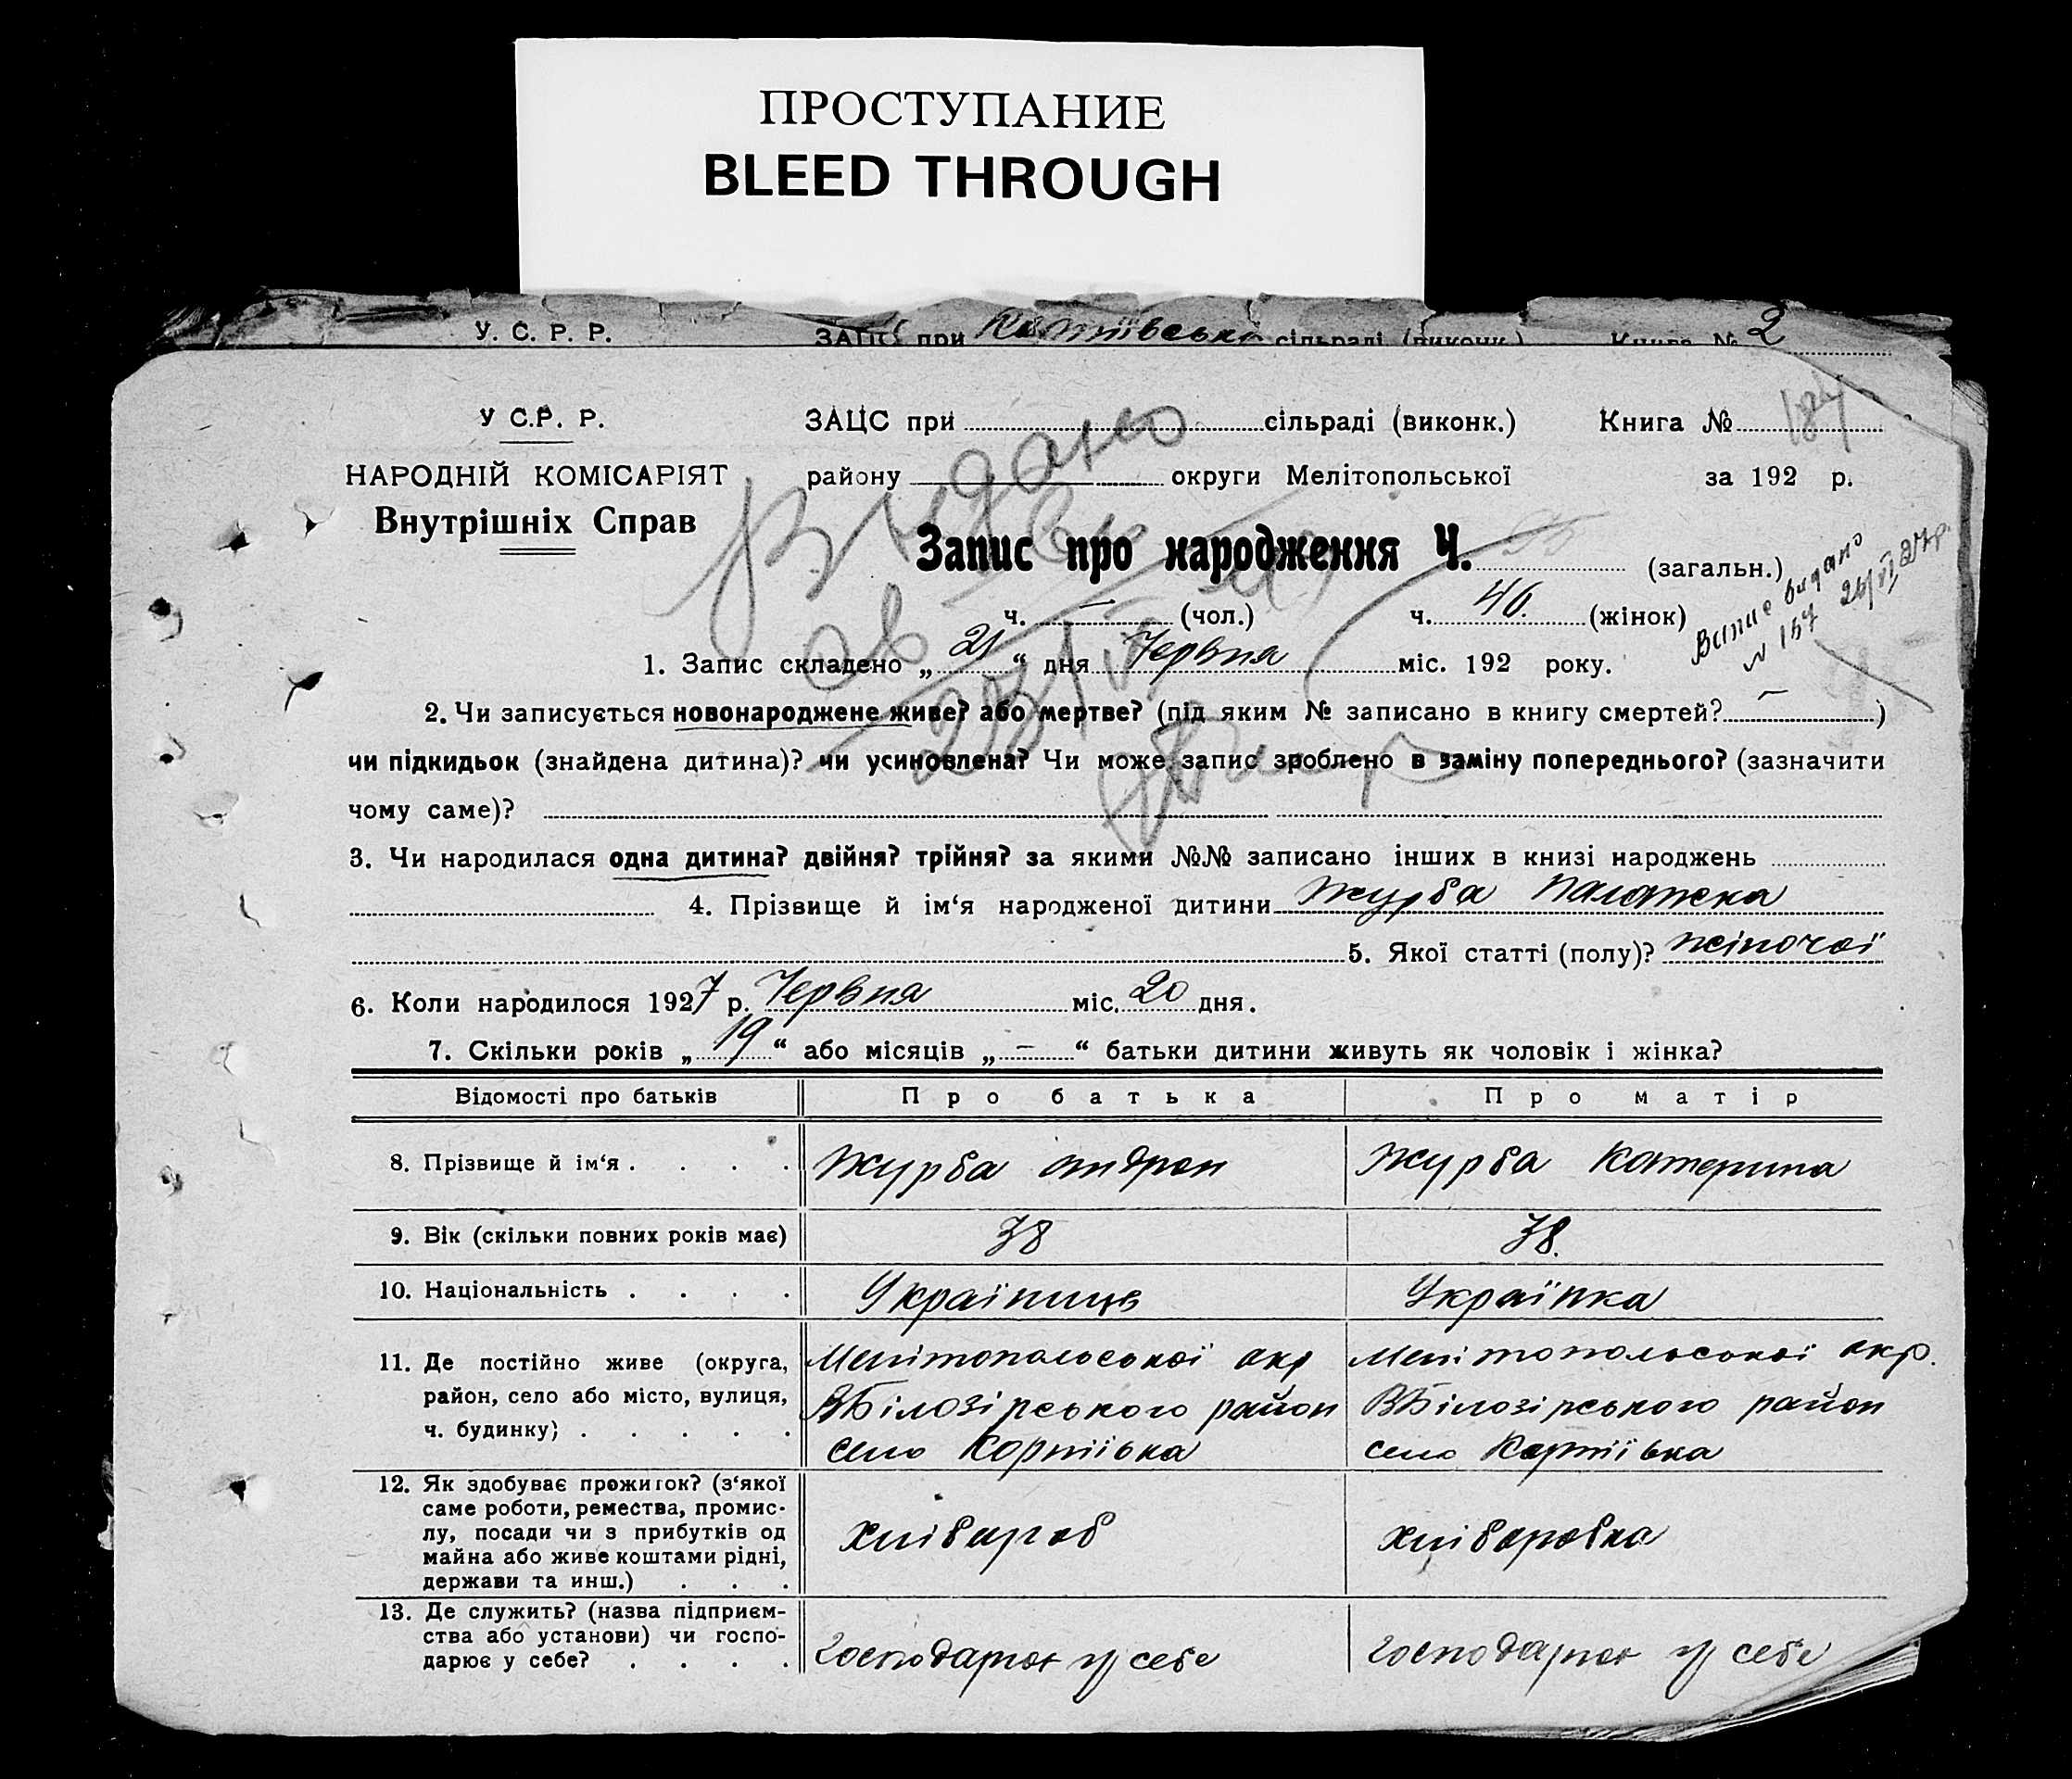 ПРОСТУПАНИЕ
BLEED THROUGH
У. С. Р. Р. ЗАЦС при сільраді (виконк.) Книга № 2
У С.Р. Р. ЗАЦС при сільраді (виконк.) Книга № 184
НАРОДНІЙ КОМІСАРІЯТ району округи Мелітопольської за 192 р.
Внутрішніх Справ
Видано
Запис про народження Ч. (загальн.)
ч. — (чол.) ч. 46. (жінок)
Випис видано
N 167 26/VI 27р.
1. Запис складено „ 21 “ дня Червня міс. 192 року.
2. Чи записується новонароджене живе? або мертве? (під яким № записано в книгу смертей? — )
чи підкидьок (знайдена дитина)? чи усиновлена? Чи може запис зроблено в заміну попереднього? (зазначити
чому саме)?
3. Чи народилася одна дитина? двійня? трійня? за якими №№ записано інших в книзі народжень
4. Прізвище й ім‘я народженої дитини Журба Палажка
5. Якої статті (полу)? жіночої
6. Коли народилося 1927 р. Червня міс. 20 дня.
7. Скільки років „ 19 “ або місяців „ — “ батьки дитини живуть як чоловік і жінка?
Відомості про батьків Про батька Про матір
8. Прізвище й ім‘я . . . . Журба Андрон Журба Катерина
9. Вік (скільки повних років має) 38 38.
10. Національність . . . . Українць Українка
11. Де постійно живе (округа, Мелітопольської окр Мелітопольської окр.
район, село або місто, вулиця, ВБілозірського район ВБілозірського район
ч. будинку) . . . . . село Кортіївка село Кортіївка
12. Як здобуває прожиток? (з‘якої
саме роботи, ремества, промис-
лу, посади чи з прибутків од хлібороб хліборобка
майна або живе коштами рідні,
держави та инш.) . . .
13. Де служить? (назва підприєм-
ства або установи) чи госпо-
дарює у себе? . . . . господарює у себе господарює у себе